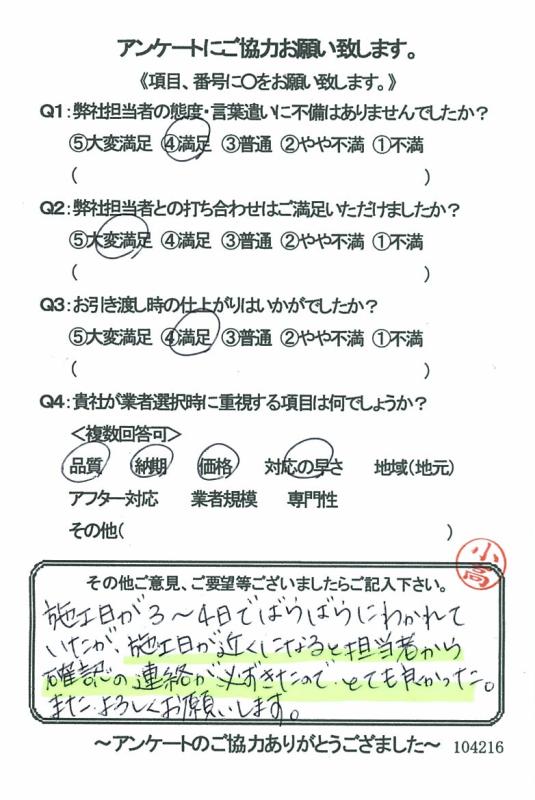 アンケートにご協力お願い致します。
《項目、番号に〇をお願い致します。》
Q1:弊社担当者の態度・言葉遣いに不備はありませんでしたか？
⑤大変満足 ④満足 ③普通 ②やや不満 ①不満
( )
Q2:弊社担当者との打ち合わせはご満足いただけましたか？
⑤大変満足 ④満足 ③普通 ②やや不満 ①不満
( )
Q3:お引き渡し時の仕上がりはいかがでしたか？
⑤大変満足 ④満足 ③普通 ②やや不満 ①不満
( )
Q4:貴社が業者選択時に重視する項目は何でしょうか？
＜複数回答可＞
品質 納期 価格 対応の早さ 地域(地元)
アフター対応 業者規模 専門性
その他( )
小高
その他ご意見、ご要望等ございましたらご記入下さい。
施工日が3～4日でばらばらにわかれて
いたが、施工日が近くになると担当者から
確認の連絡が必ずきたので、とても良かった。
また、よろしくお願いします。
～アンケートのご協力ありがとうござました～ 104216